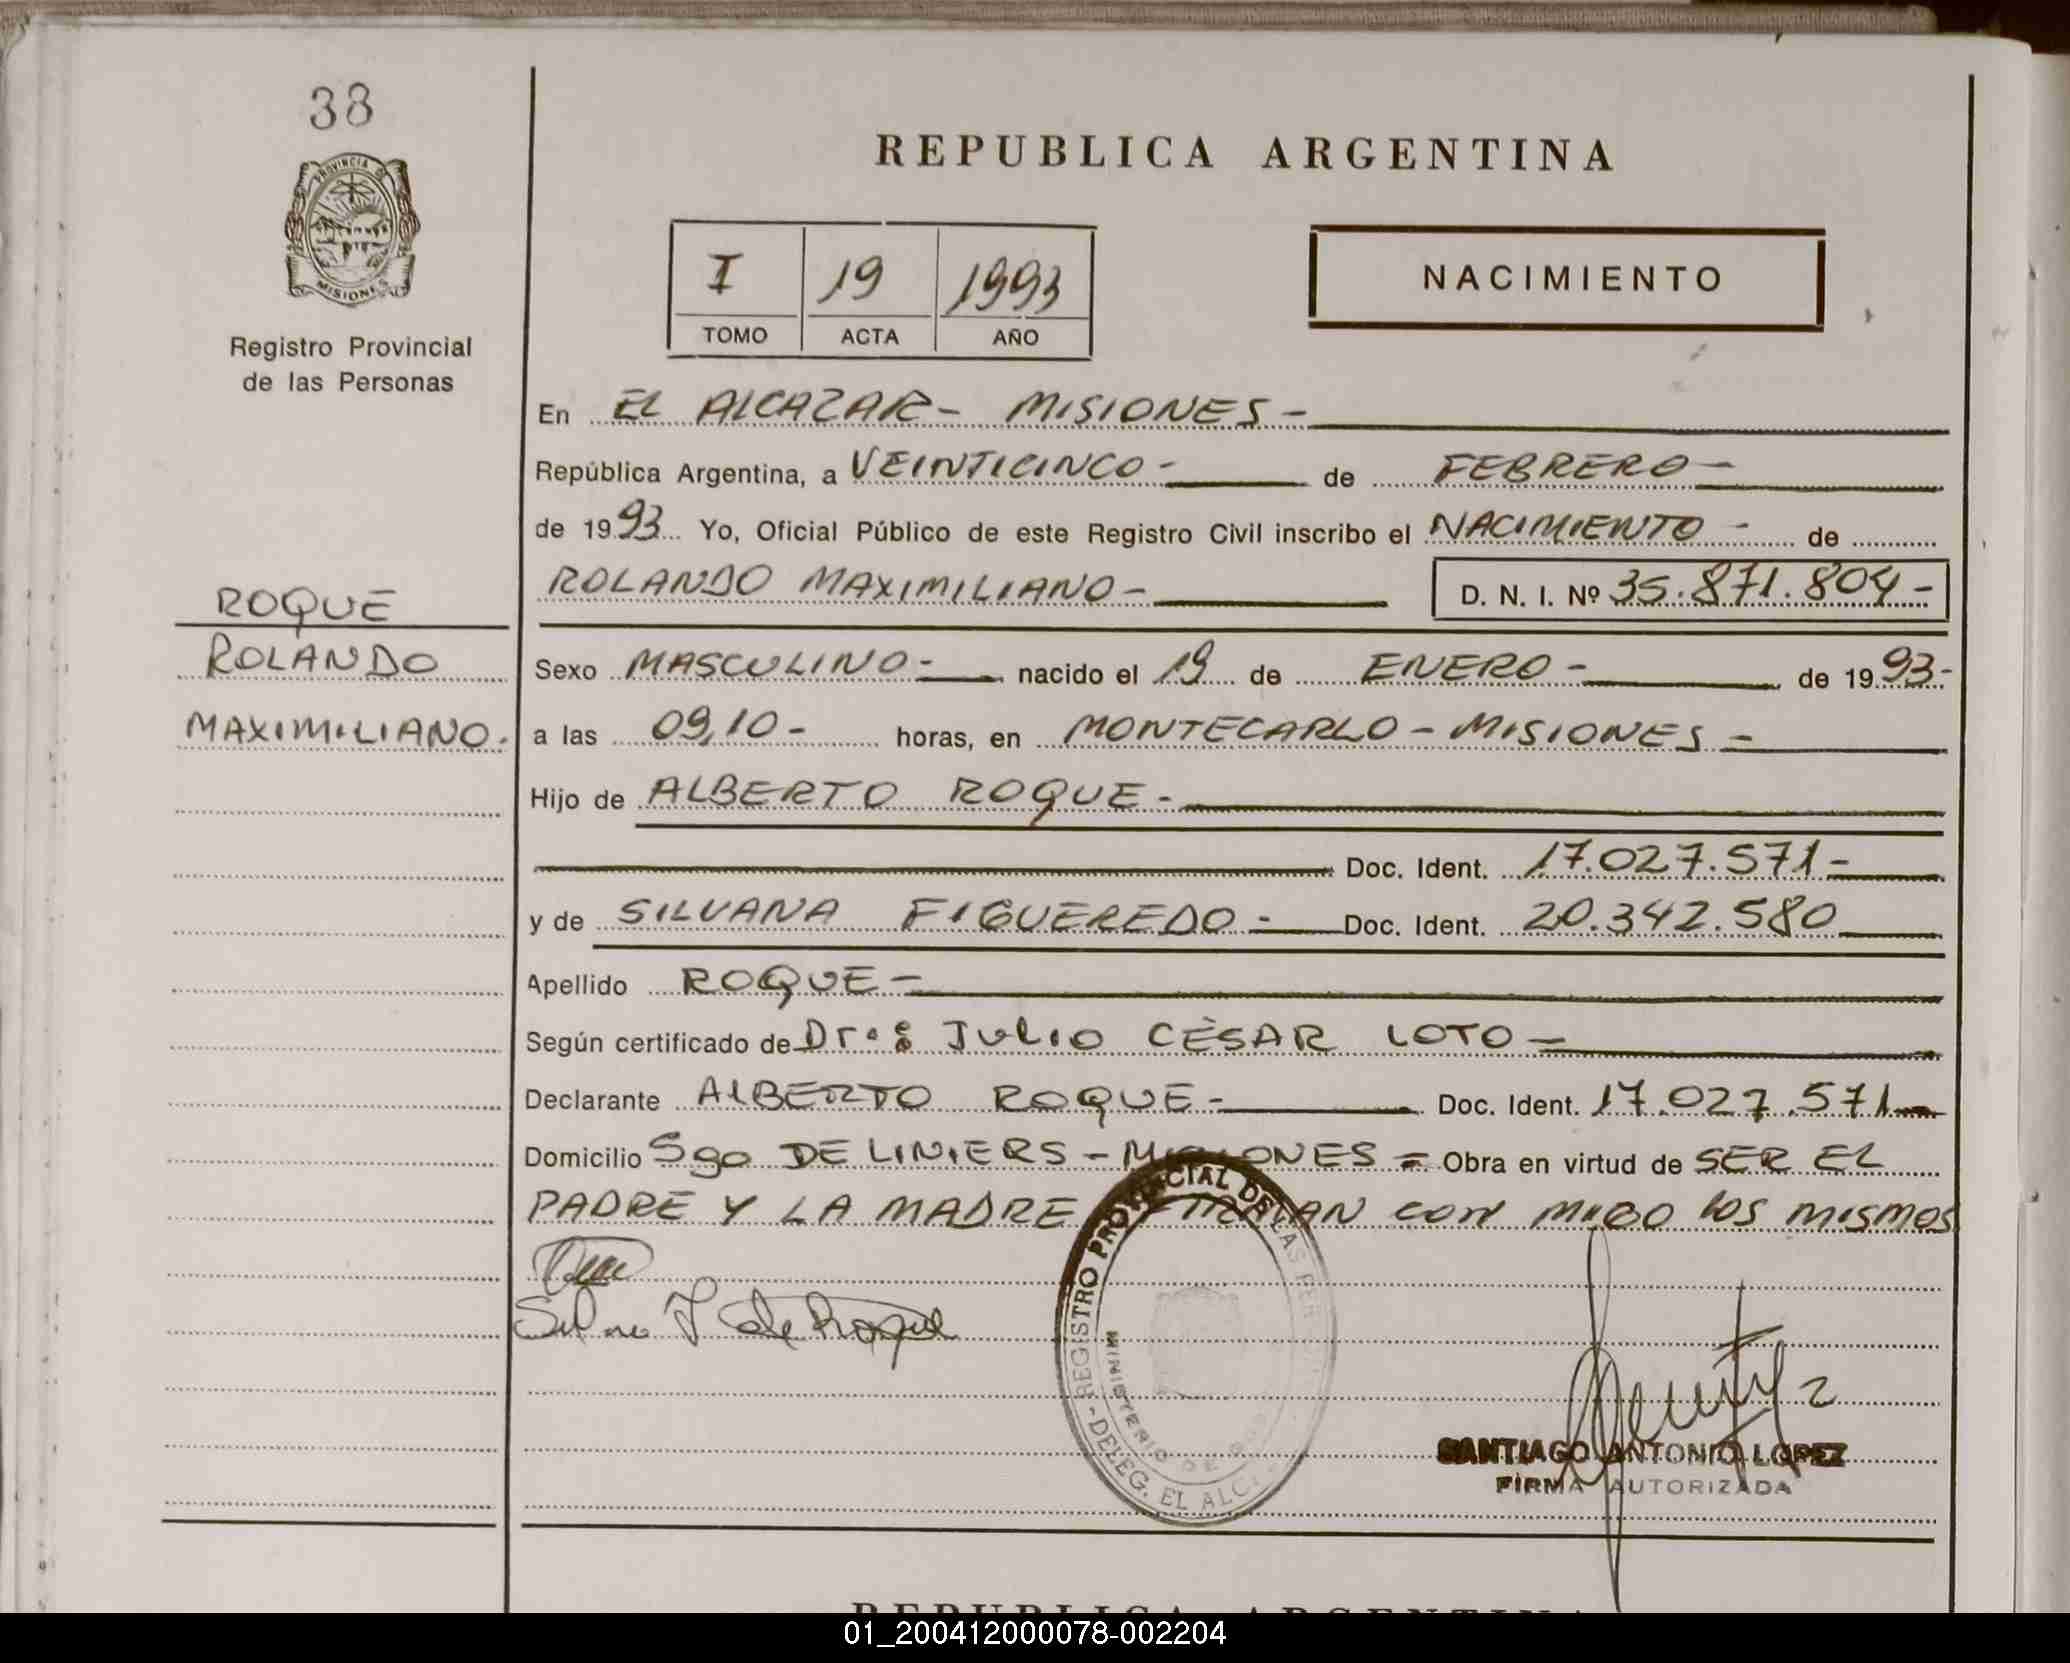 38
PROVINCIA DE
MISIONES
Registro Provincial
de las Personas
REPUBLICA ARGENTINA
I 19 1993
TOMO ACTA AÑO
NACIMIENTO
En EL ALCAZAR - MISIONES -
República Argentina, a VEINTICINCO - de FEBRERO -
de 1993 Yo, Oficial Público de este Registro Civil inscribo el NACIMIENTO - de
ROLANDO MAXIMILIANO - D. N. I. Nº 35.871.804 -
ROQUE
ROLANDO
MAXIMILIANO.
Sexo MASCULINO - nacido el 19 de ENERO - de 1993-
a las 09,10 - horas, en MONTECARLO - MISIONES -
Hijo de ALBERTO ROQUE -
Doc. Ident. 17.027.571 -
y de SILVANA FIGUEREDO - Doc. Ident. 20.342.580
Apellido ROQUE -
Según certificado de Dr.: JULIO CÉSAR LOTO -
Declarante ALBERTO ROQUE - Doc. Ident. 17.027.571 -
Domicilio Sgo DE LINIERS - MISIONES = Obra en virtud de SER EL
PADRE Y LA MADRE FIRMAN CON MIGO LOS MISMOS
REGISTRO PROVINCIAL DE LAS PER
MINISTERIO DE GO
- DELEG. EL ALC
SANTIAGO ANTONIO LOPEZ
FIRMA AUTORIZADA
REPUBLICA ARGENTINA
01_200412000078-002204